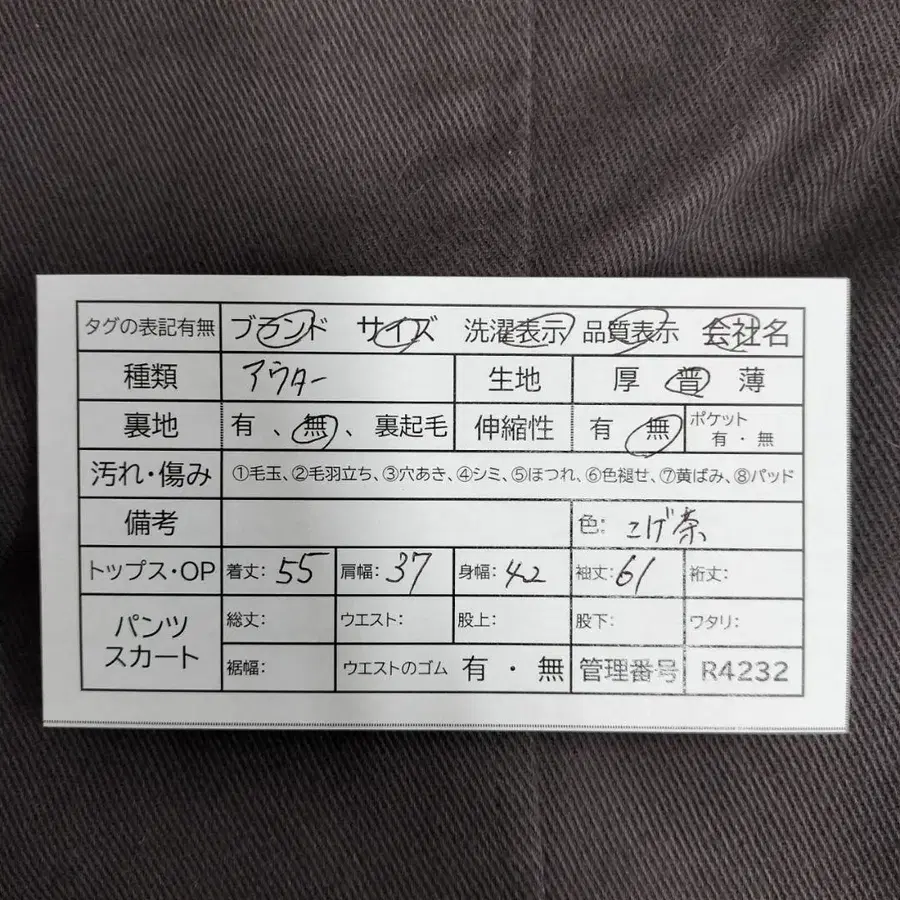 タグの表記有無 ブランド サイズ 洗濯表示 品質表示 会社名
種類 アウター 生地 厚 普 薄
裏地 有 、無、 裏起毛 伸縮性 有 無 ポケット 有・無
汚れ・傷み ①毛玉、②毛羽立ち、③穴あき、④シミ、⑤ほつれ、⑥色褪せ、⑦黄ばみ、⑧パッド
備考 色: こげ茶
トップス・OP 着丈: 55 肩幅: 37 身幅: 42 袖丈: 61 裄丈:
パンツ スカート 総丈: ウエスト: 股上: 股下: ワタリ:
裾幅: ウエストのゴム 有・無 管理番号 R4232